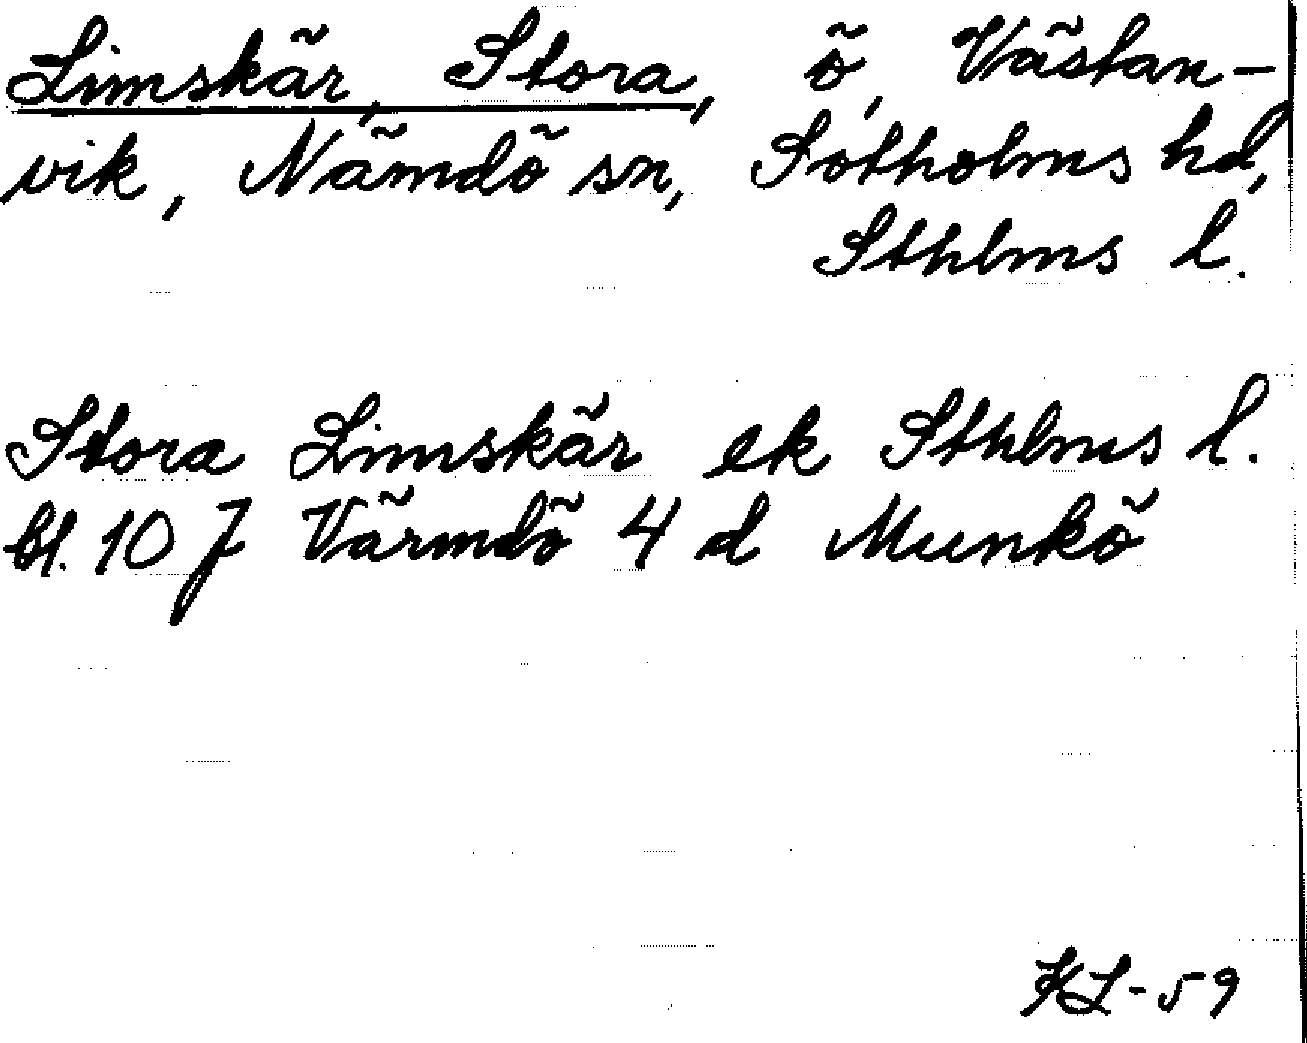 Limskär, Stora, ö, Västan-
vik, Nämdö sn, Sotholms hd,
Sthlms l.
Stora Limskär ek Sthlms l.
bl. 107 Värmdö 4 d Munkö
KL-59